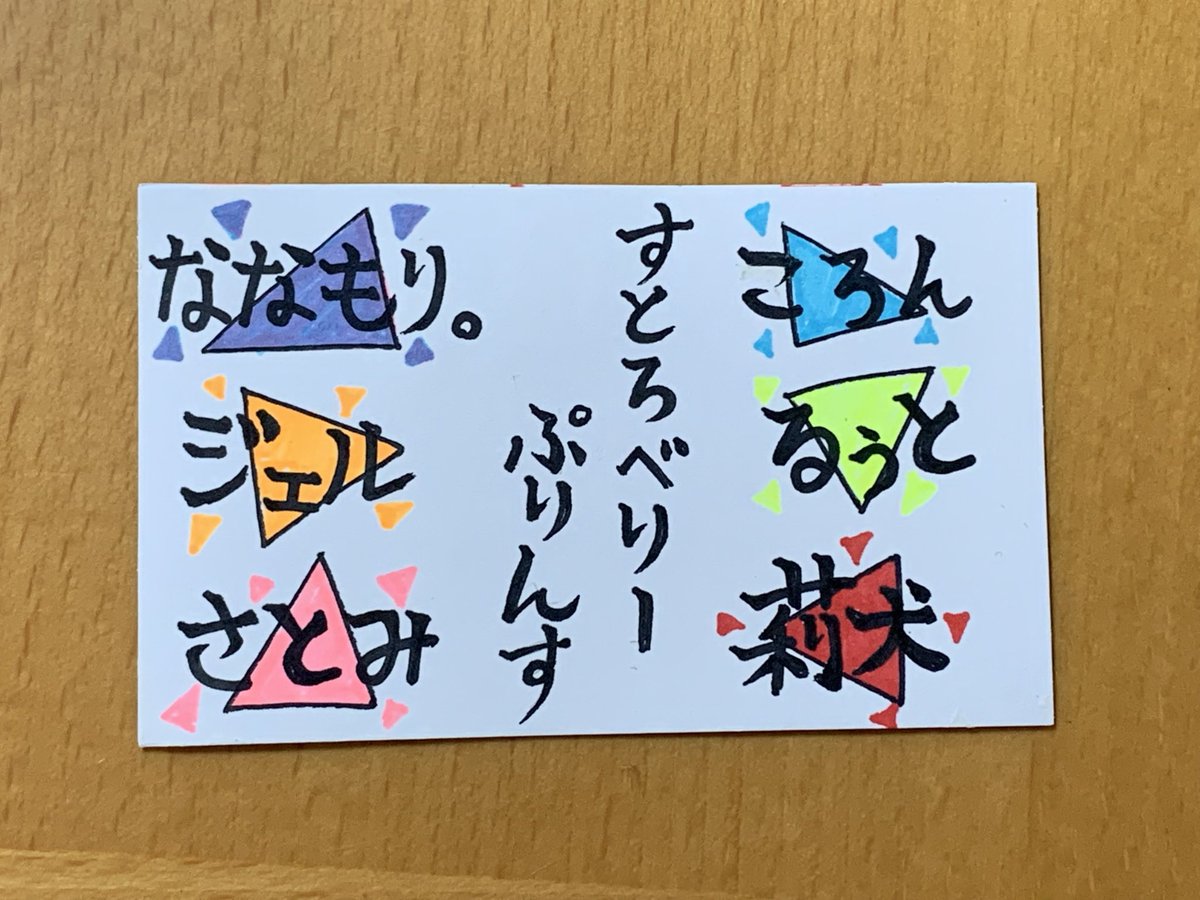 ころん
るぅと
莉犬
すとろべりー
ぷりんす
ななもり。
ジェル
さとみ